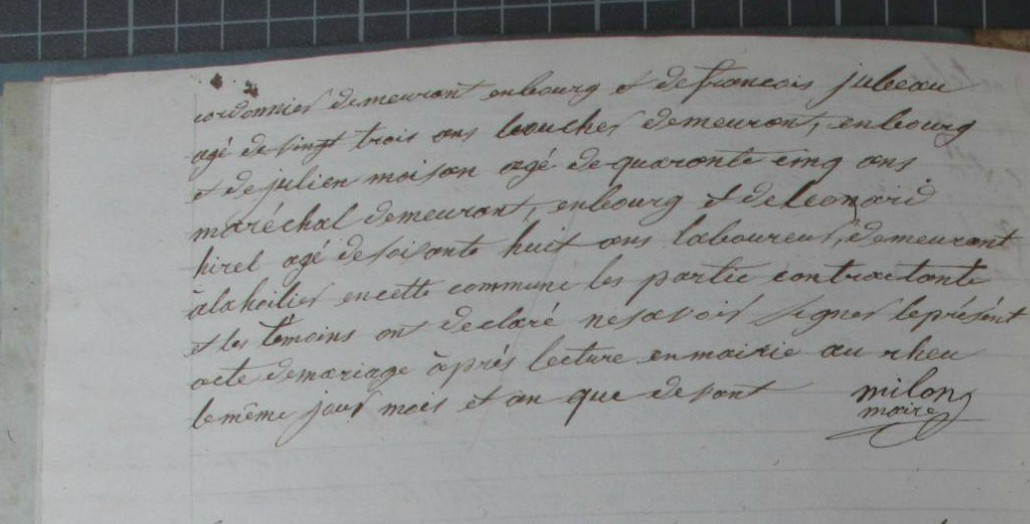 cordonnier demeurant enbourg et defrancois jubeau
agé de vingt trois ans boucher demeurant, enbourg
et de julien moison agé dequaronte cinq ans
maréchal demeurant, enbourg et deleonard
hirel agé desoisante huit ans laboureur, demeurant
àlahoilier encette commune les partie contractante
et les témoins ont declaré nesavoir signer leprésent
acte demariage àprés lecture enmairie au rheu
lemême jour mois et an que devant milon
maire